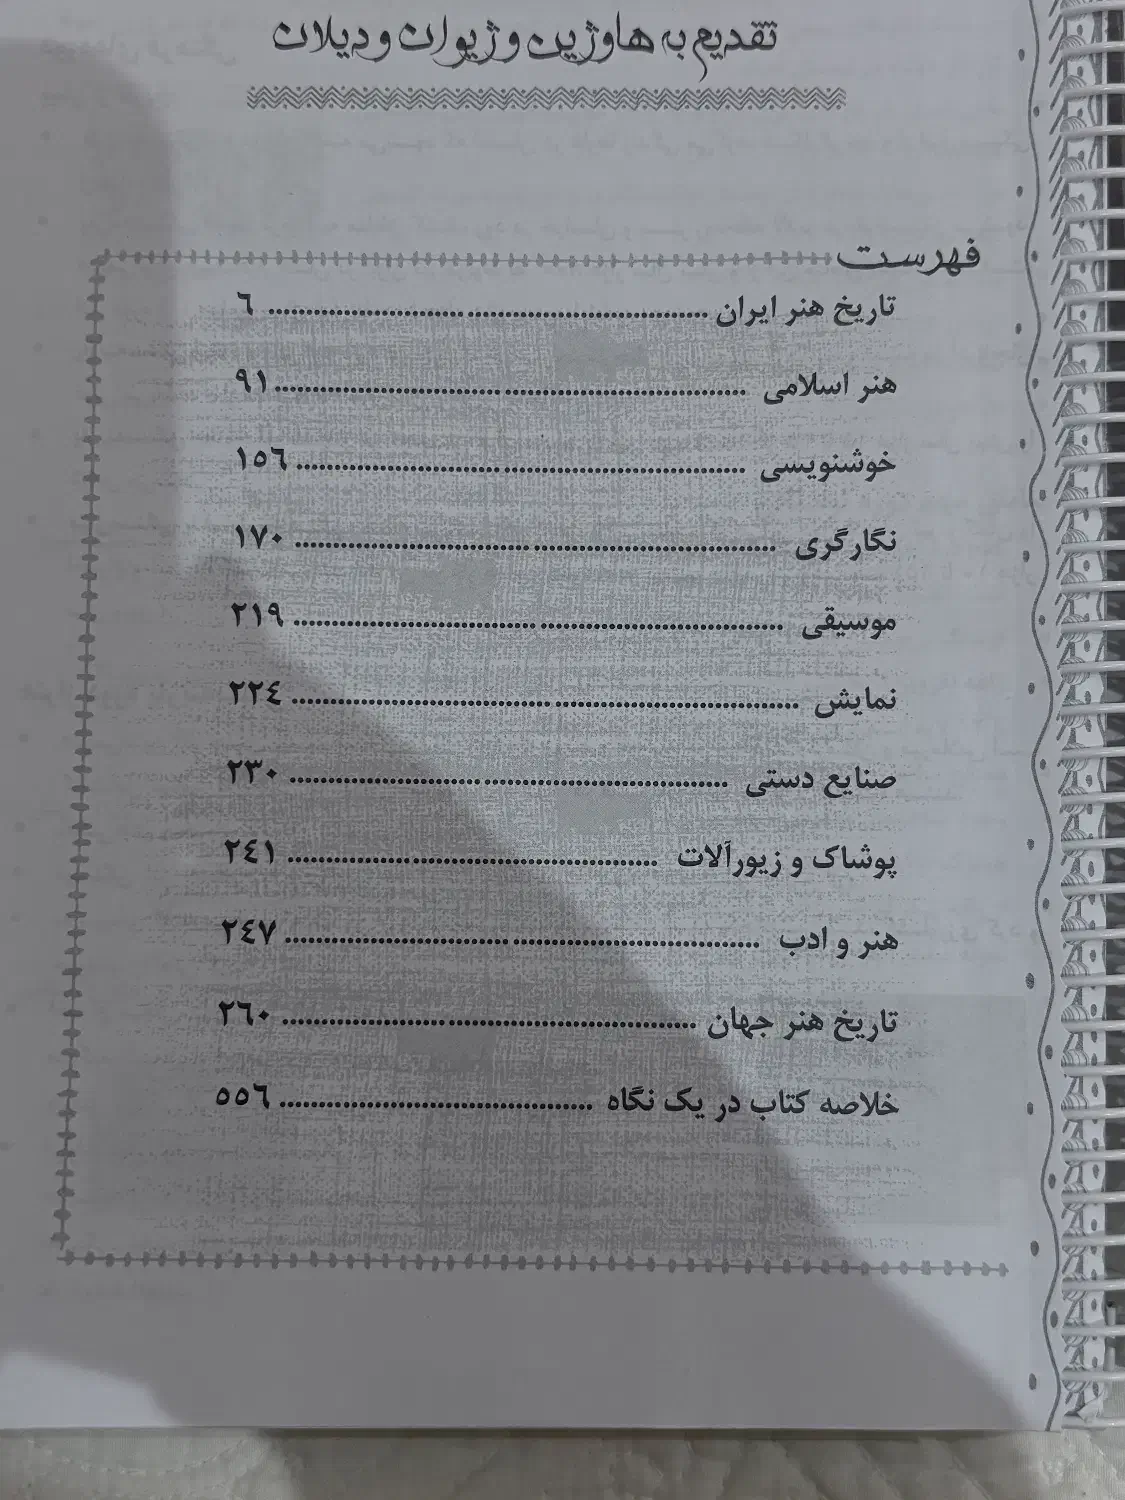 تقدیم به هاوژین و ژیوان و دیلان
فهرست
تاریخ هنر ایران ........................................................ ٦
هنر اسلامی ............................................................ ٩١
خوشنویسی ........................................................ ١٥٦
نگارگری ............................................................ ١٧٠
موسیقی ............................................................ ٢١٩
نمایش ............................................................ ٢٢٤
صنایع دستی ........................................................ ٢٣٠
پوشاک و زیورآلات ................................................ ٢٤١
هنر و ادب ............................................................ ٢٤٧
تاریخ هنر جهان .................................................... ٢٦٠
خلاصه کتاب در یک نگاه ........................................ ٥٥٦